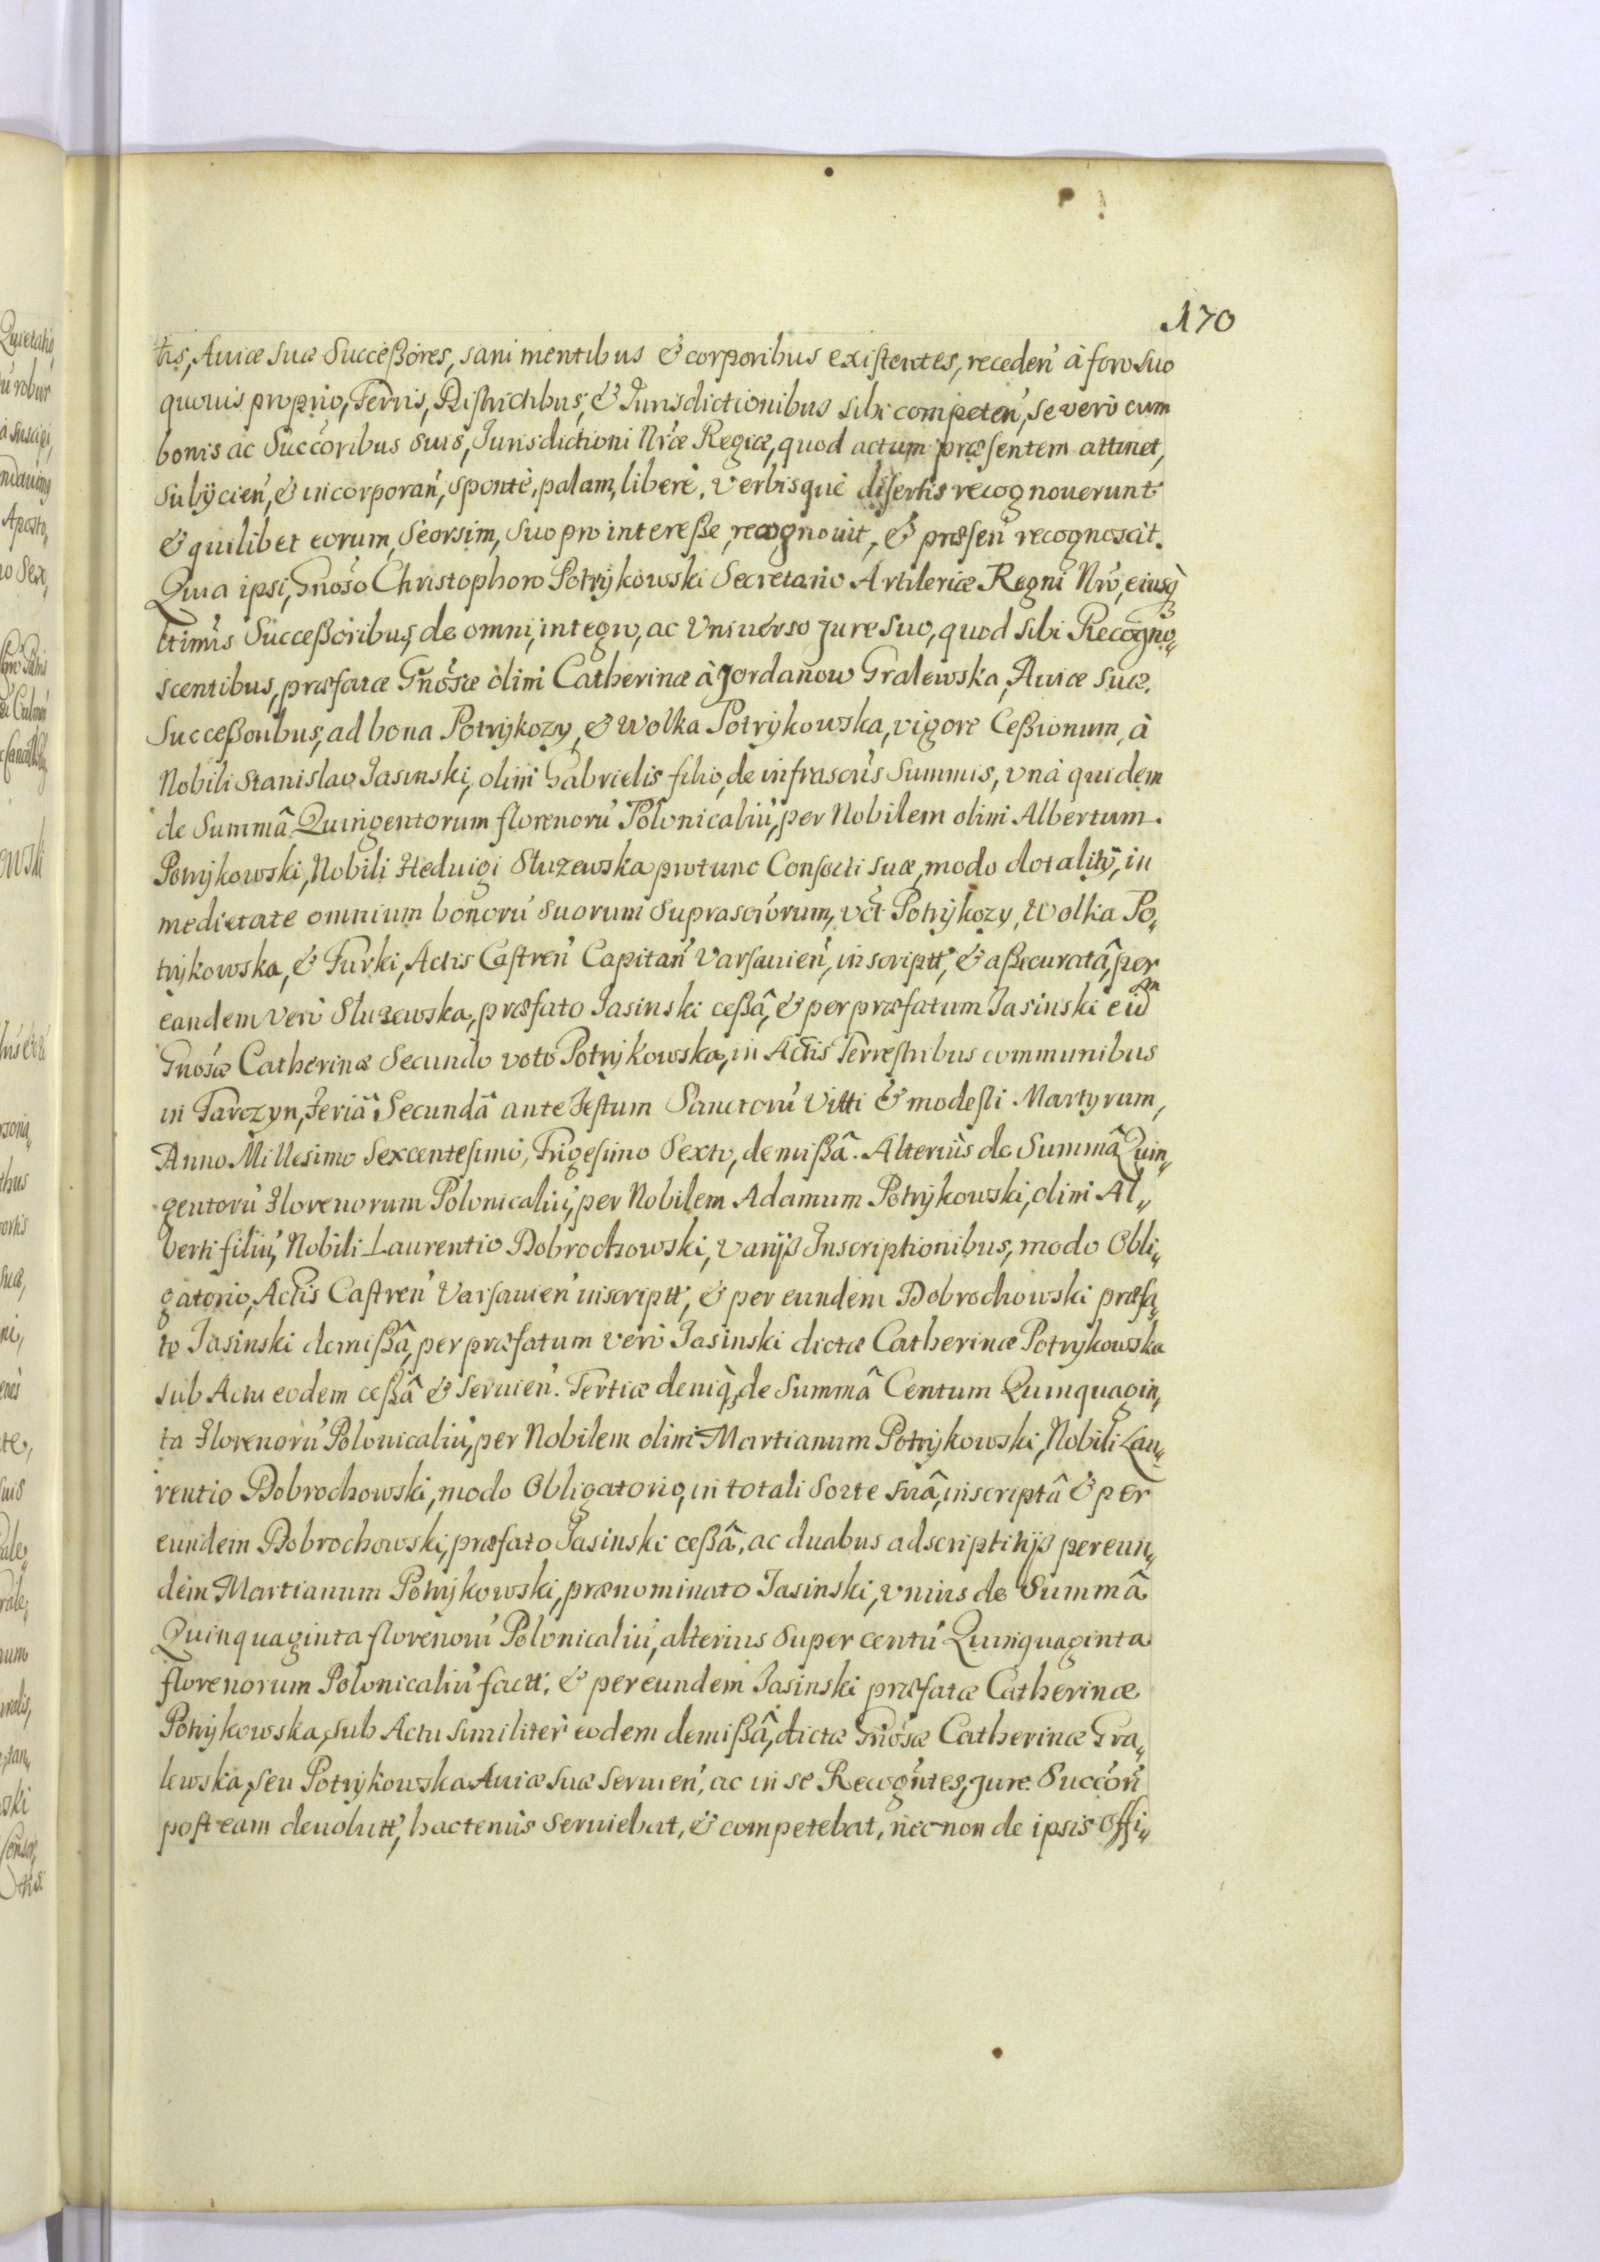 170
tris, Auiæ suæ Successores, sani mentibus & corporibus existentes, receden̄ à foro suo
quouis proprio, Terris, Districtibus, & Jurisdictionibus sibi competen̄, se verò cum
bonis ac Succōribus suis, Jurisdictioni Nr̄æ Regiæ, quod actum præsentem attinet,
subijcien̄, & incorporan̄, spontè, palam, liberè, verbisquè disertis recognouerunt
& quilibet eorum, seorsim, suo pro interesse, recognouit, & præsen̄ recognoscit.
Quia ipsi, Gnōso Christophoro Potrijkowski Secretario Artileriæ Regni Nr̄o, eiusq̃
ltimis Successoribus, de omni, integro, ac Vniuerso jure suo, quod sibi Recogno„
scentibus, præfatæ Gnōsæ olim Catherinæ à Jordanow Gralewska, Auiæ suæ,
Successoribus, ad bona Potrijkozy, & Wolka Potrijkowska, vigore Cessionum, à
Nobili Stanislao Jasinski, olim Gabrielis filio, de infrascr̄is Summis, vnâ quidem
de Summâ Quingentorum florenorū Polonicaliū, per Nobilem olim Albertum
Potrijkowski, Nobili Heduigi Sluzewska protunc Consorti suæ, modo dotalitij, in
medietate omnium bonorū suorum suprascr̄orum, vc̄t Potrijkozy, Wolka Po„
trijkowska, & Turki, Actis Castren̄ Capitan̄ Varsauien̄, inscriptt, & assecuratâ, per
eandem verò Sluzewska, præfato Jasinski cessâ, & per præfatum Jasinski eidm
Gnōsæ Catherinæ Secundo voto Potrijkowska, in Actis Terrestribus communibus
in Tarczyn, feriâ Secundâ ante festum Sanctorū Vitti & modesti Martyrum,
Anno Millesimo Sexcentesimo, Trigesimo Sexto, demissâ. Alterius de Summâ Quin„
gentorū Florenorum Polonicaliū, per Nobilem Adamum Potrijkowski, olim Al„
berti filiū, Nobili Laurentio Dobrochowski, varijs Inscriptionibus, modo Obli„
gatorio, Actis Castren̄ Varsauien̄ inscriptt, & per eundem Dobrochowski præfa„
to Jasinski demissâ, per præfatum verò Jasinski dictæ Catherinæ Potrijkowska
sub Actu eodem cessâ & seruien̄. Tertiæ deniq̃ de Summâ Centum Quinquagin„
ta Florenorū Polonicaliū, per Nobilem olim Martianum Potrijkowski, Nobili Lau„
rentio Dobrochowski, modo Obligatorio, in totali Sorte suâ, inscriptâ & per
eundem Dobrochowski, præfato Jasinski cessâ, ac duabus adscriptitijs per eun„
dem Martianum Potrijkowski, prænominato Jasinski, vnius de Summâ
Quinquaginta florenorū Polonicaliū, alterius super centū Quinquaginta
florenorum Polonicaliū factt, & per eundem Jasinski præfatæ Catherinæ
Potrijkowska, sub Actu similiter eodem demissâ, dictæ Gnōsæ Catherinæ Gra„
lewska, seu Potrijkowska Auiæ suæ seruien̄, ac in se Recogn̄tes, jure Succōrī
post eam deuolutt, hactenùs seruiebat, & competebat, nec non de ipsis Offi„